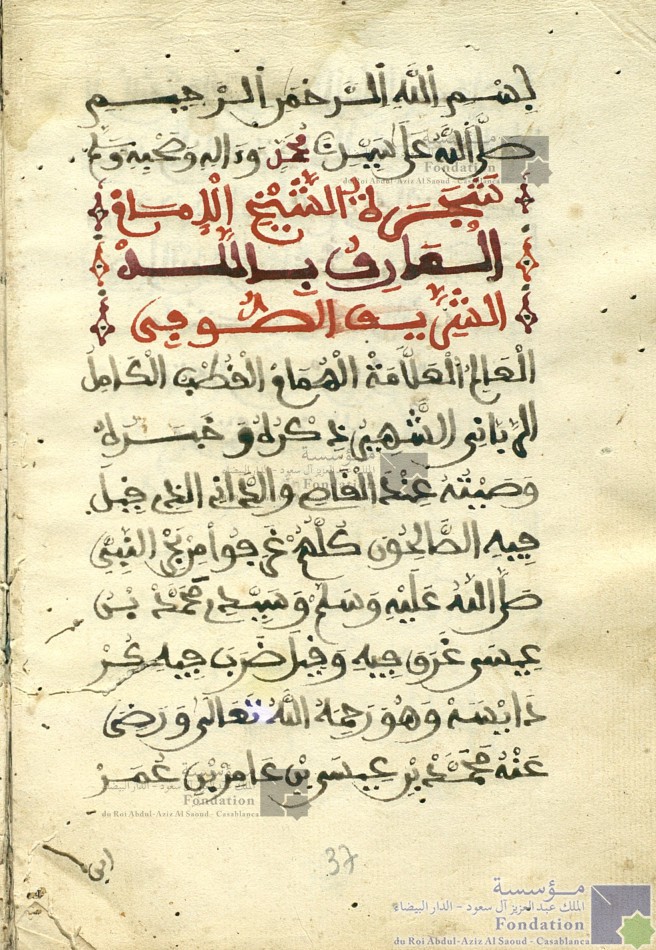 بسم الله الرحمن الرحيم
صلى الله على نبينا محمد وءاله وصحبه وسلم
شجرة الشيخ الإمام
العارف بالله
الشريف الصوفي
العالم العلامة الهمام القطب الكامل
الرباني الشهير ذكره وخبره
وصيته عند القاص والداني الذي قيل
فيه الصالحون كلهم غرفوا من بحر النبي
صلى الله عليه وسلم وسيدي محمد بن
عيسى غرق فيه وقيل ضرب فيه
وهو رحمه الله تعالى ورضي
عنه محمد بن عيسى بن عامر بن عمر
ابن
37
مؤسسة
الملك عبد العزيز آل سعود - الدار البيضاء
Fondation
du Roi Abdul-Aziz Al Saoud - Casablanca